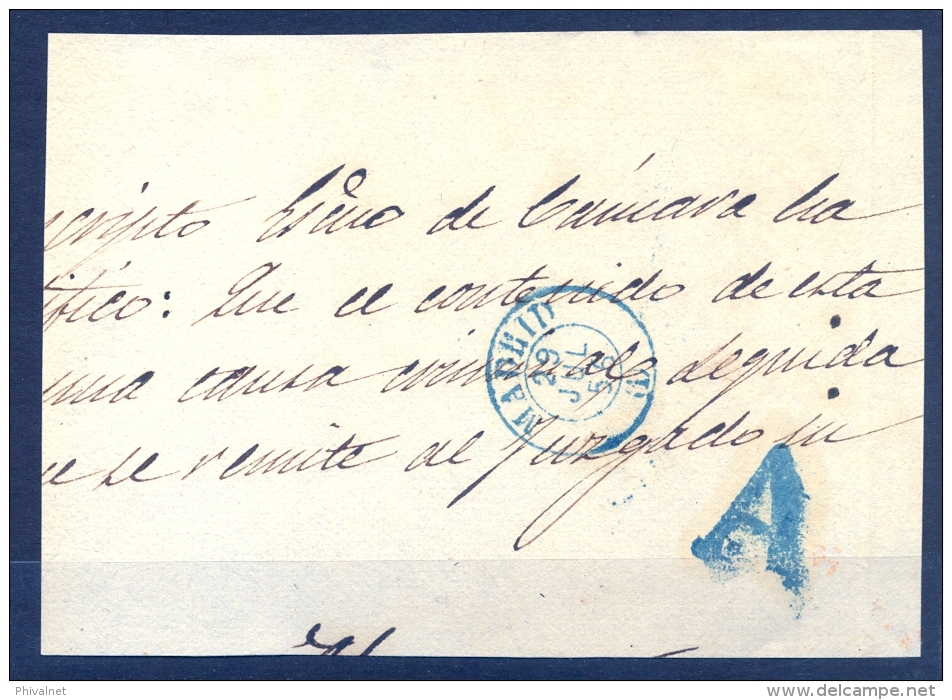 cripto Escno de Cámara ha
tifico: Que el contenido de esta
una causa criminal seguida
ue se remite al Juzgado in
MADRID
29
JUL
58
(1)
A
Phivalnet
delcampe.net